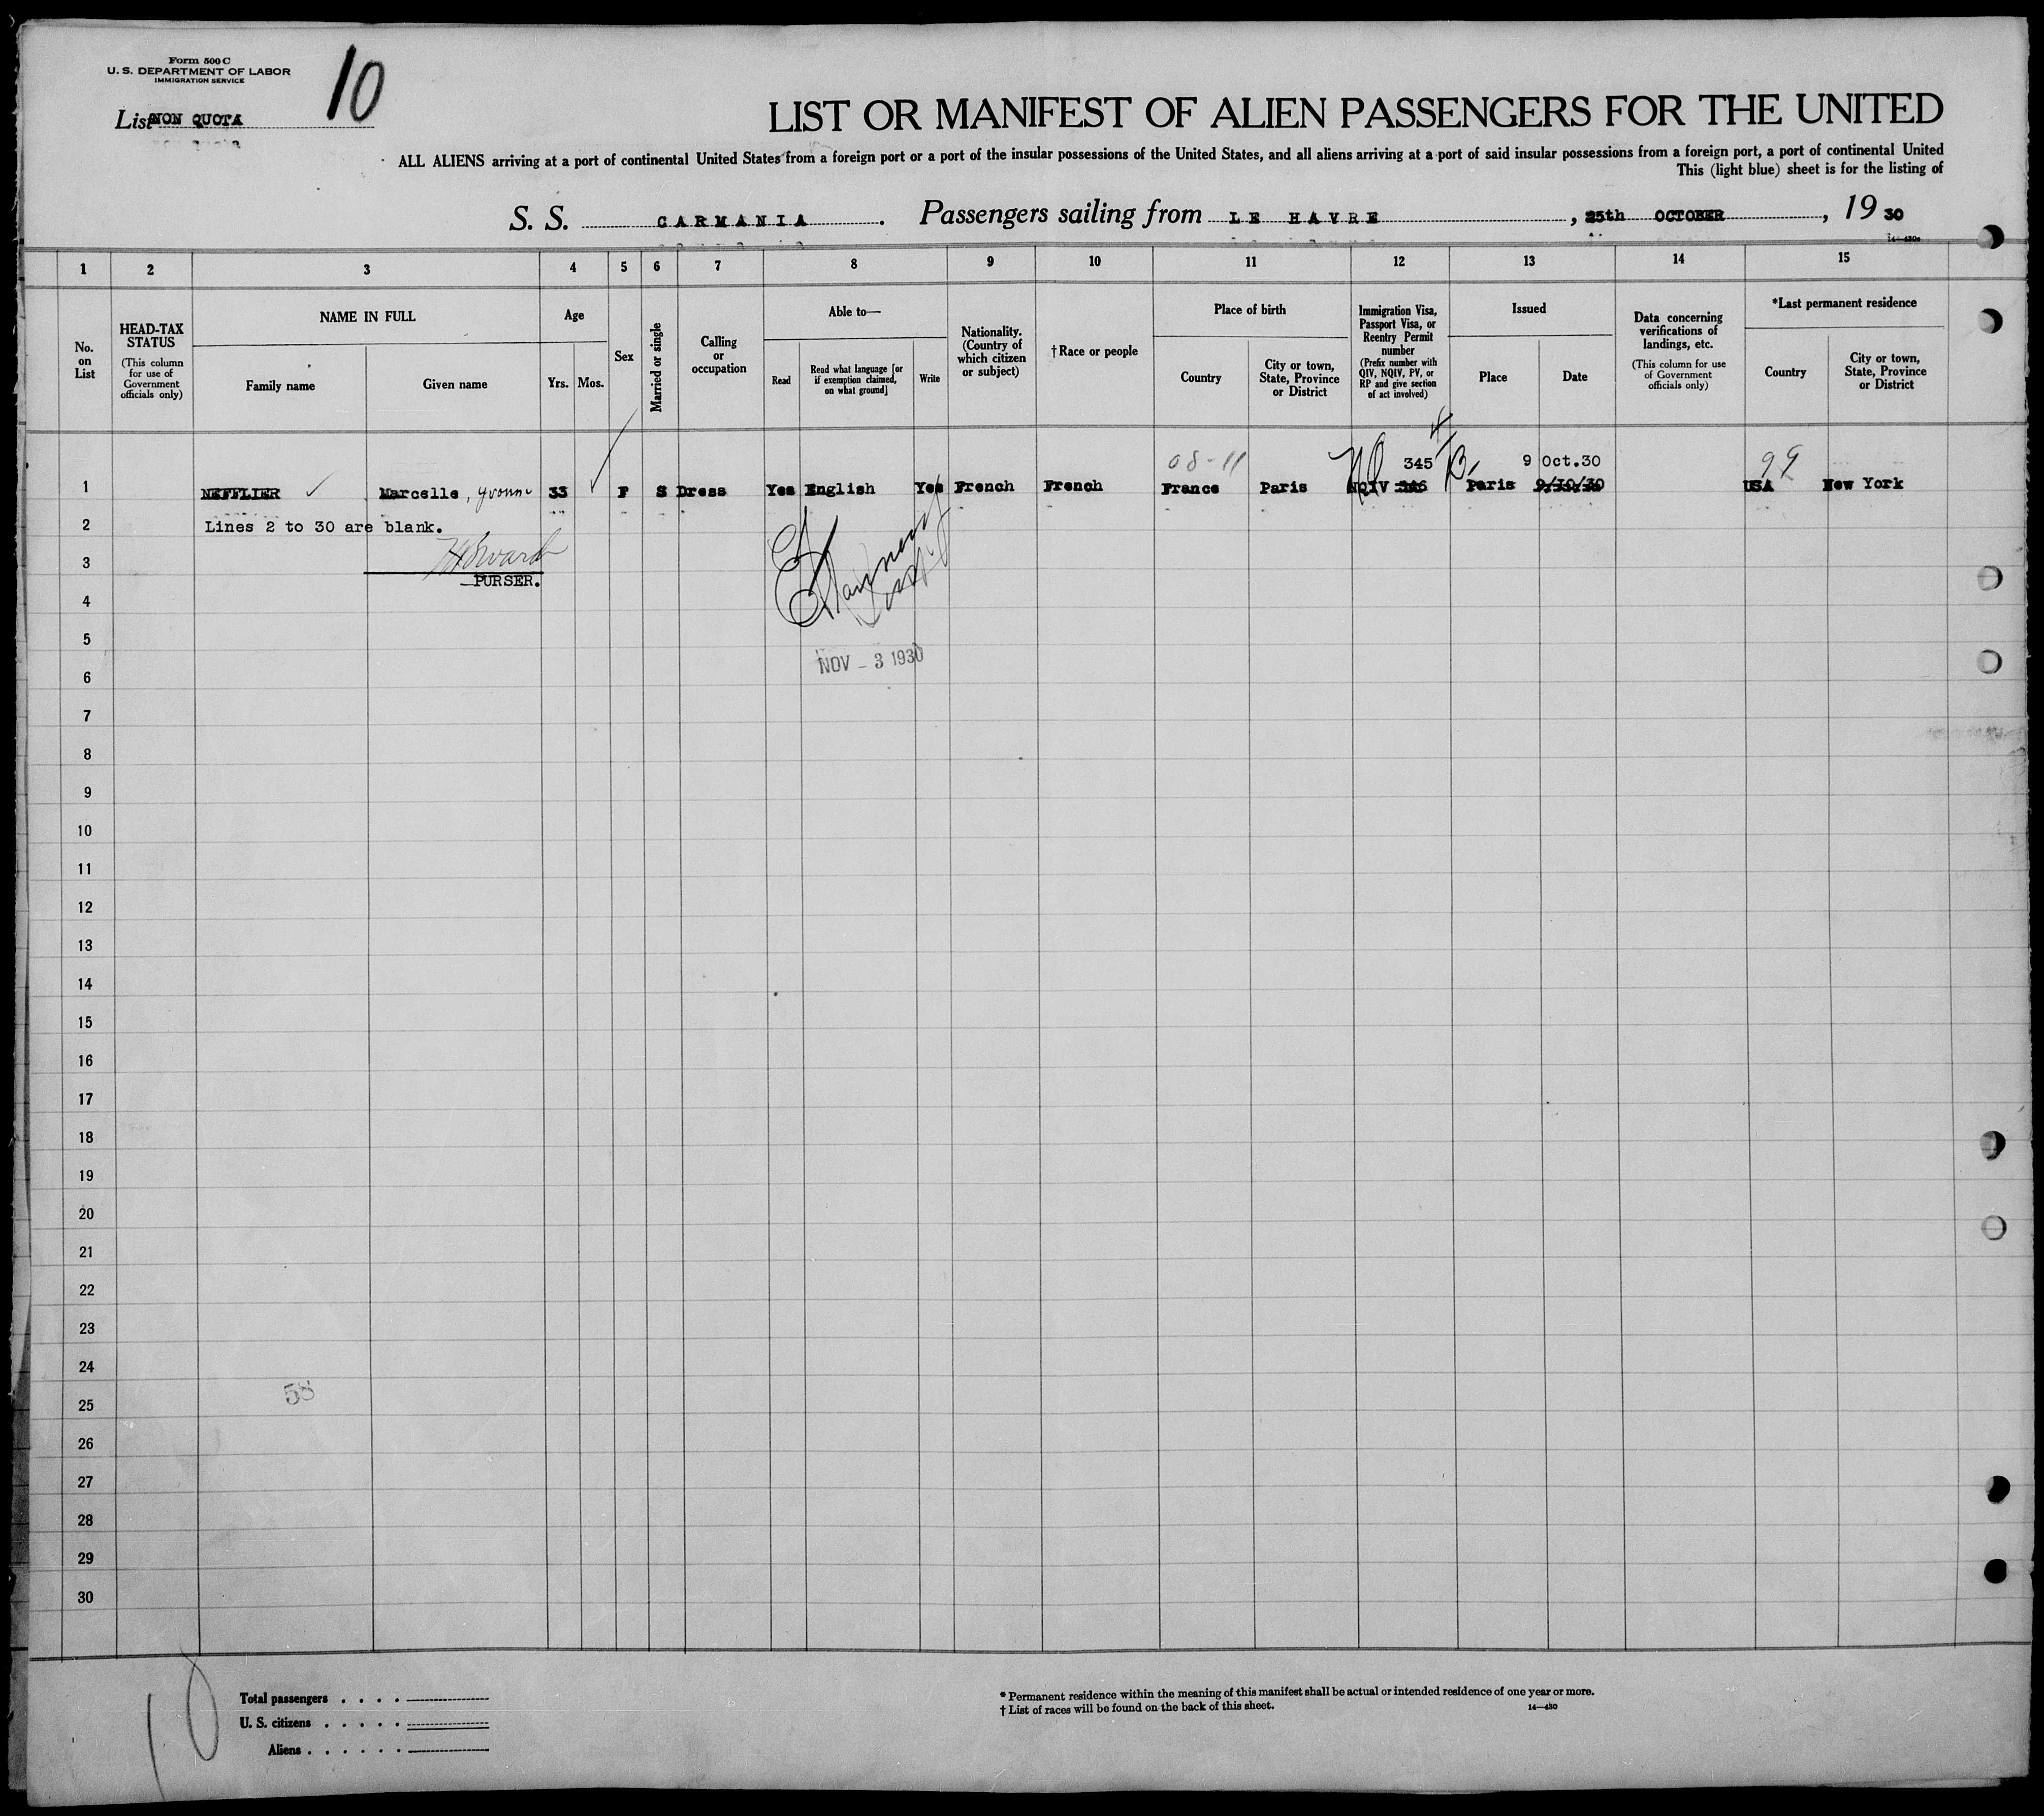 Form 500 C
U. S. DEPARTMENT OF LABOR
IMMIGRATION SERVICE
10
List NON QUOTA
LIST OR MANIFEST OF ALIEN PASSENGERS FOR THE UNITED
ALL ALIENS arriving at a port of continental United States from a foreign port or a port of the insular possessions of the United States, and all aliens arriving at a port of said insular possessions from a foreign port, a port of continental United
This (light blue) sheet is for the listing of
S. S. CARMANIA. Passengers sailing from LE HAVRE, 25th OCTOBER, 19 30
1 2 3 4 5 6 7 8 9 10 11 12 13 14 15
No. on List
HEAD-TAX STATUS
(This column for use of Government officials only)
NAME IN FULL
Family name
Given name
Age
Yrs. Mos.
Sex
Married or single
Calling or occupation
Able to—
Read
Read what language [or if exemption claimed, on what ground]
Write
Nationality. (Country of which citizen or subject)
†Race or people
Place of birth
Country
City or town, State, Province or District
Immigration Visa, Passport Visa, or Reentry Permit number
(Prefix number with QIV, NQIV, PV, or RP and give section of act involved)
Issued
Place
Date
Data concerning verifications of landings, etc.
(This column for use of Government officials only)
*Last permanent residence
Country
City or town, State, Province or District
08-11 345 9 Oct.30 99
1 NEFFLIER Marcelle, Yvonne 33 F S Dress Yes English Yes French French France Paris NQIV Paris 9/10/30 USA New York
2 Lines 2 to 30 are blank.
3
PURSER.
4
5
NOV - 3 1930
6
7
8
9
10
11
12
13
14
15
16
17
18
19
20
21
22
23
24
58
25
26
27
28
29
30
10
Total passengers . . . .
U. S. citizens . . . . .
Aliens . . . . . .
* Permanent residence within the meaning of this manifest shall be actual or intended residence of one year or more.
† List of races will be found on the back of this sheet.
14—430